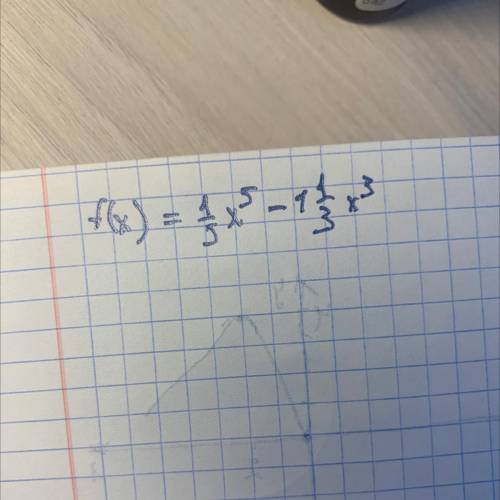 f(x) = 1/5 x⁵ - 1 1/3 x³